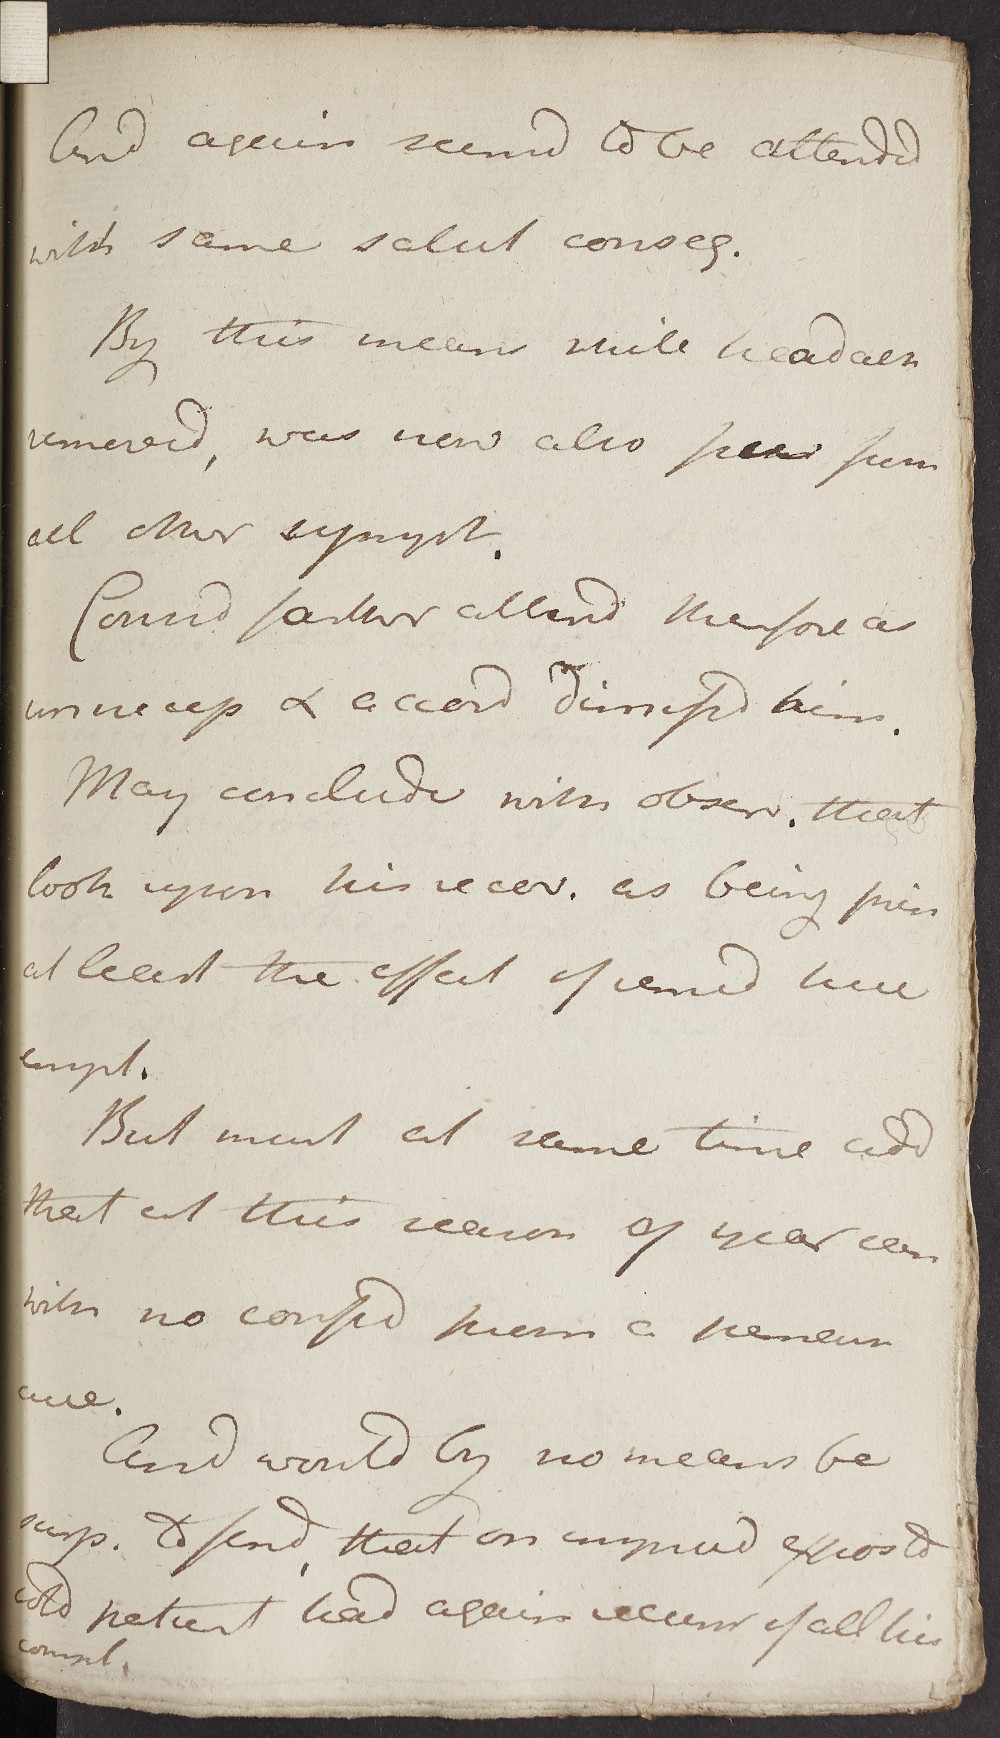 And again seemd to be attendd
with same salut conseq.
By this means while headach
removed, was now also free from
all other sympt.
Consid farther attend therefore as
unnecess & accord dismissd him.
May conclude with observ. that
look upon his recov. as being prin
at least the effect of remed here
empl.
But must at same time add
that at this season of year can
with no confid prom a perman
ance.
And would by no means be
surp. to find, that on impru exposd to
cold patient had again recurr of all his
compl.